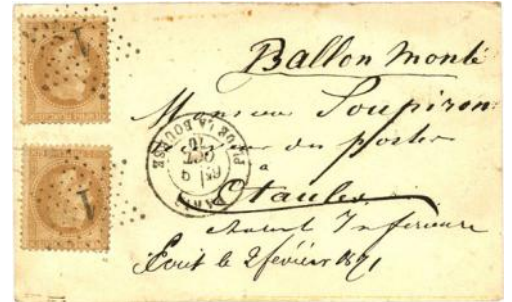 Ballon monté
Monsieur Soupiron
des postes
à
Etaules
Inférieure
Ecrit le 2 février 1871
PARIS
PL. DE LA BOURSE
OCT.
70
1
1